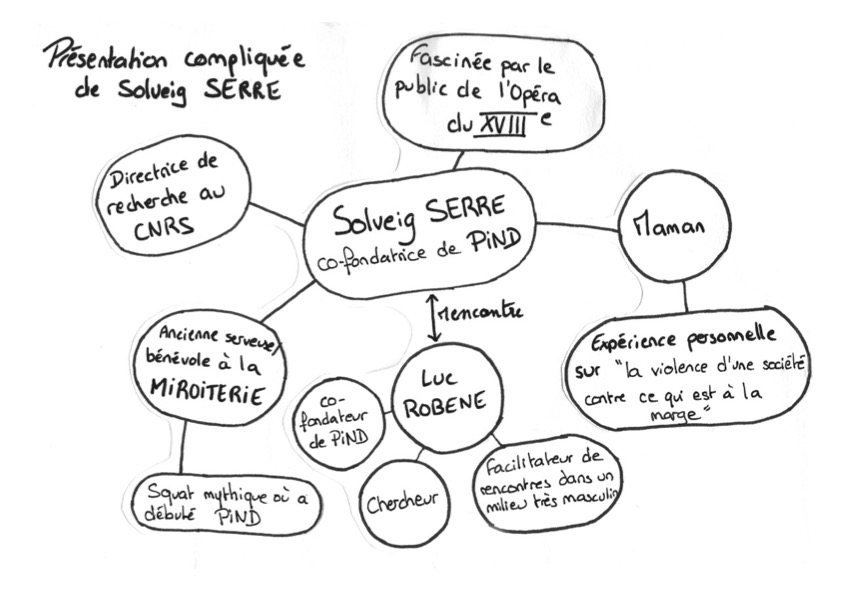 Présentation compliquée
de Solveig SERRE
Fascinée par le
public de l'Opéra
du XVIIIe
Directrice de
recherche au
CNRS
Solveig SERRE
co-fondatrice de PiND
Maman
rencontre
Ancienne serveuse
bénévole à la
MiROiTERiE
Expérience personnelle
sur "la violence d'une société
contre ce qui est à la
marge"
Luc
ROBENE
co-
fondateur
de PiND
Squat mythique où a
débuté PiND
Chercheur
Facilitateur de
rencontres dans un
milieu très masculin